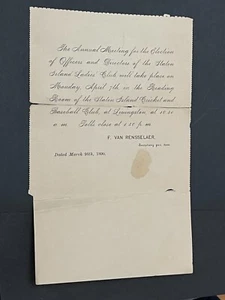 The Annual Meeting for the Election
of Officers and Directors of the Staten
Island Ladies' Club will take place on
Monday, April 7th in the Reading
Room of the Staten Island Cricket and
Baseball Club, at Livingston, at 10.30
a.m. Polls close at 1.30 p.m.
F. VAN RENSSELAER,
Secretary
Dated March 1890.